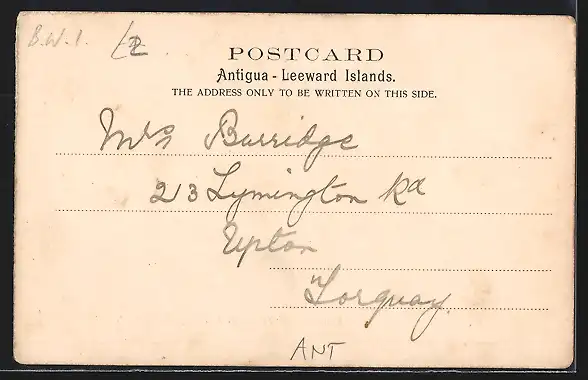 B.W.I.
POSTCARD
Antigua - Leeward Islands.
THE ADDRESS ONLY TO BE WRITTEN ON THIS SIDE.
Mrs Burridge
213 Lymington Rd
Upton
Torquay
ANT